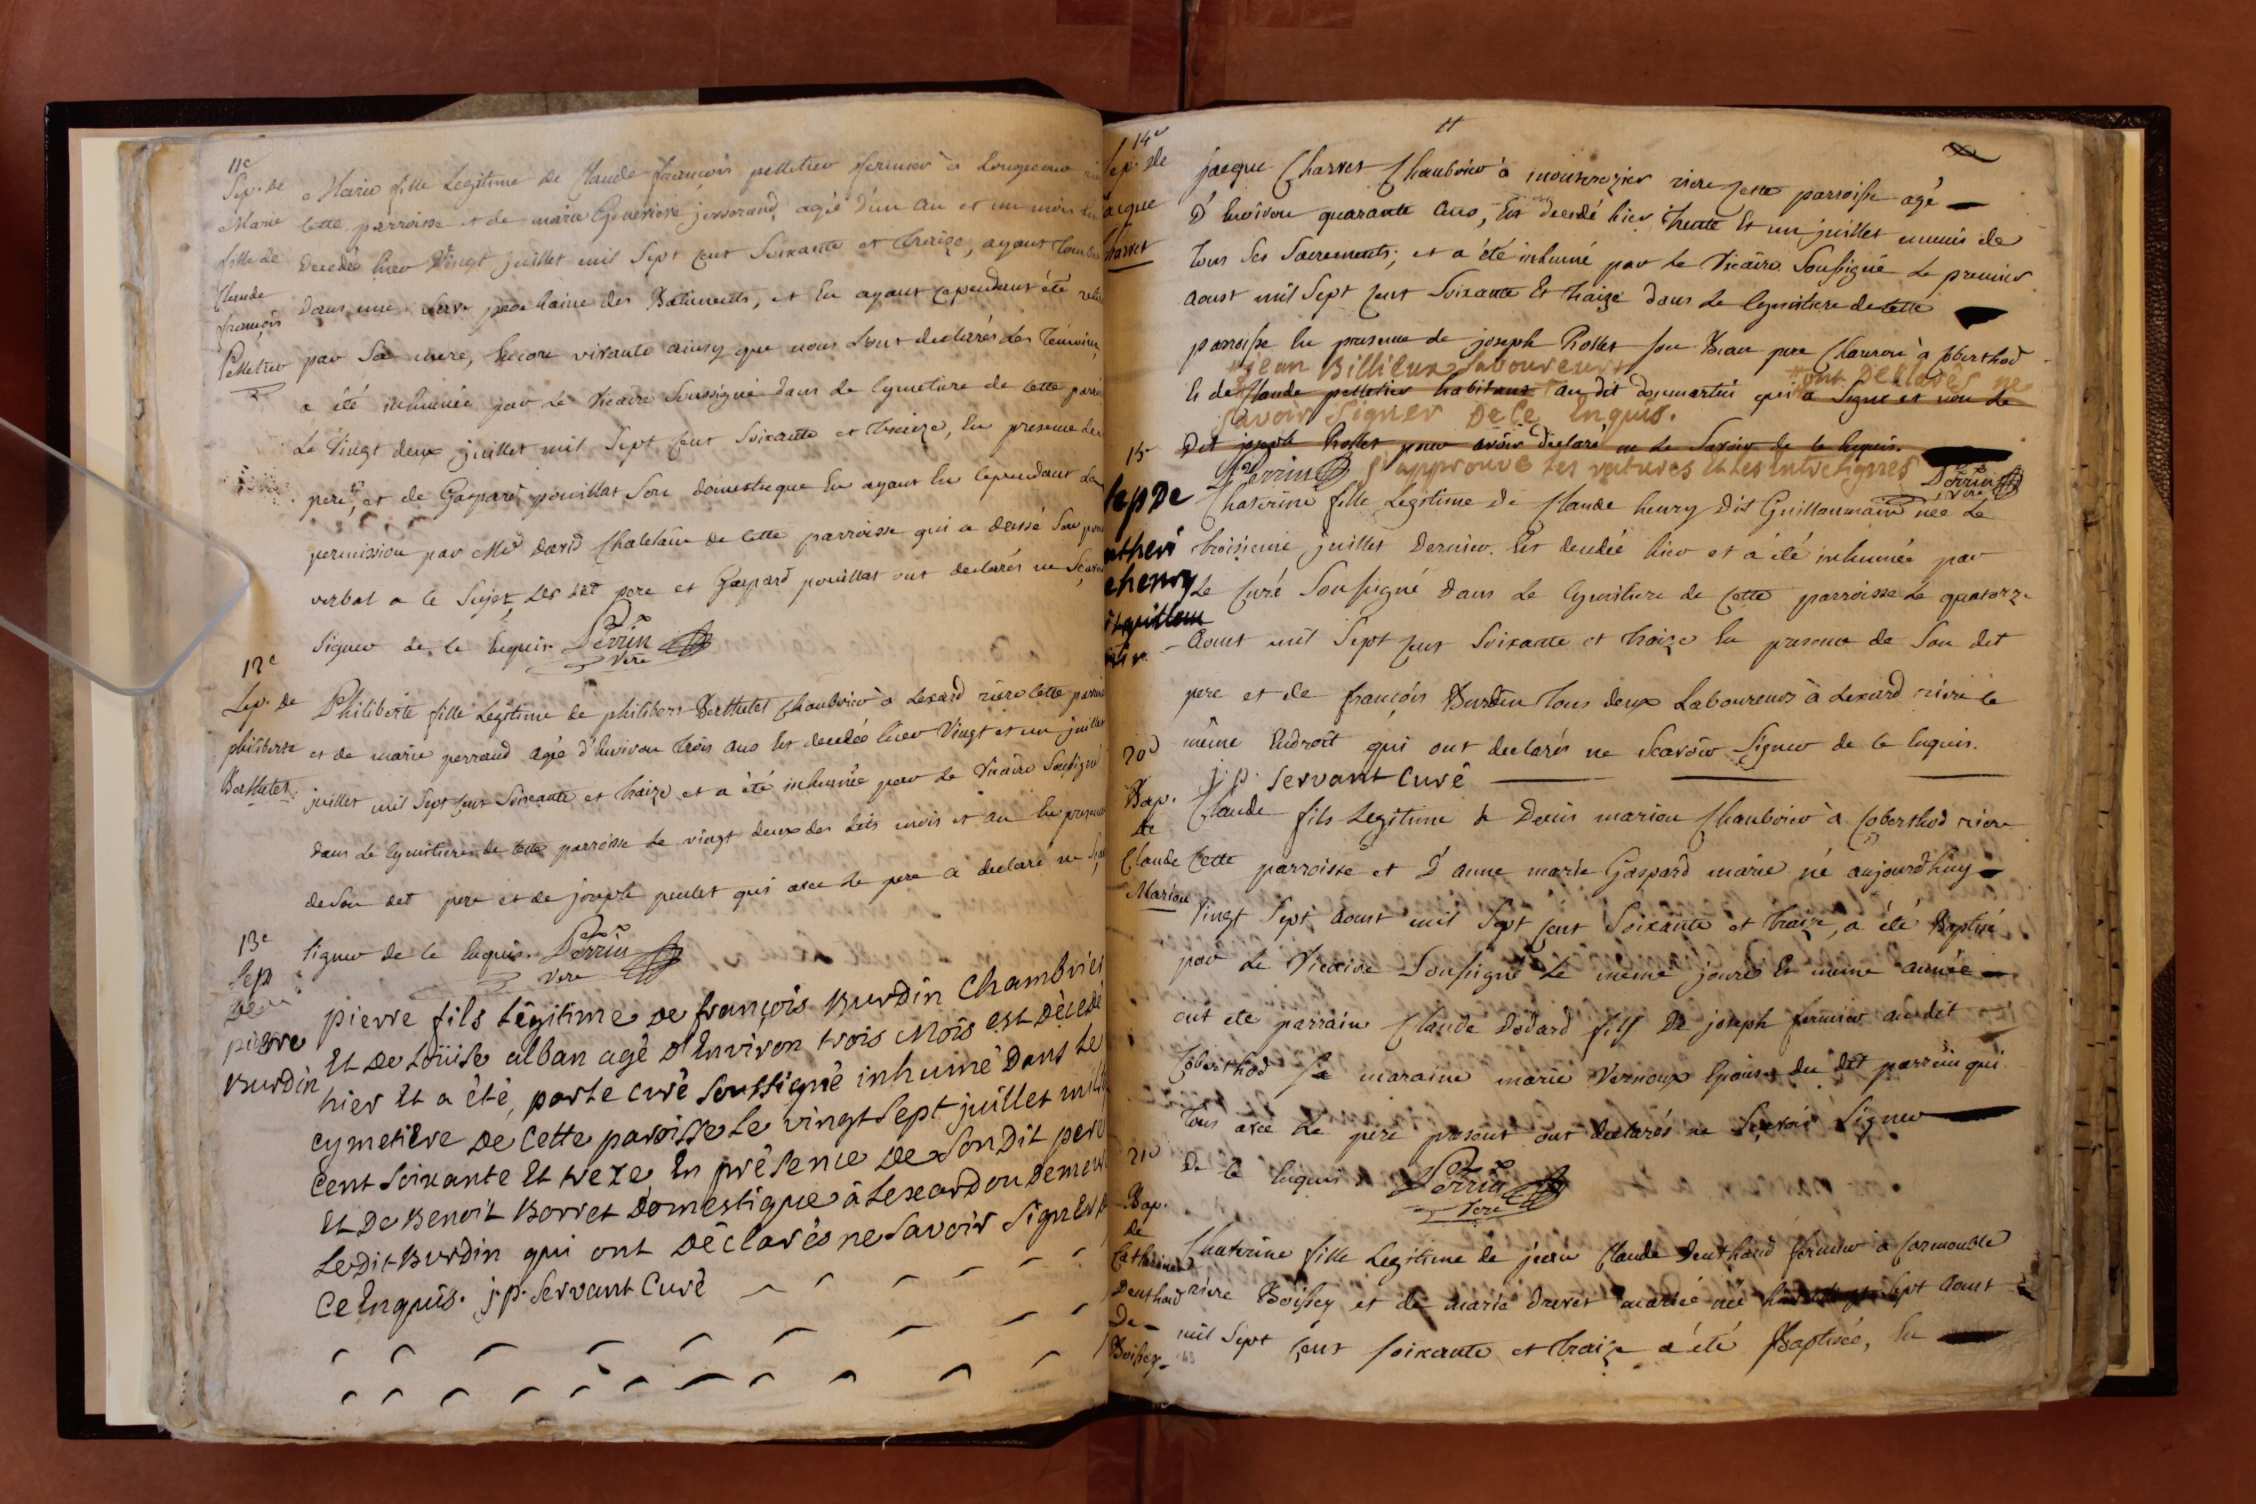 11e
Sep. de
Marie
fille de
Claude
françois
Pelletier
Marie fille Legitime de Claude françois pelletier fermier à
cette parroisse et de marie Genevieve josserand agée d'un an et un mois
decedée hier Vingt juillet mil Sept cent Soixante et traize, ayant
dans une serve prochaine des Batiments, et En ayant cependant été
par Sa mere, Encore vivante ainsy que nous L'ont declarés des Temoins,
a été inhumée par Le Vicaire Soussigné dans Le Cymetiere de cette
Le Vingt deux juillet mil Sept cent Soixante et traize, En presence
pere, et de Gaspard pouillat Son domestique En ayant Eu cependant
permission par Mer David Chatelain de cette parroisse qui a dressé Son
verbal a ce Sujet, Les dit pere et Gaspard pouillat ont declarés ne
Signer de ce Enquis. Perrin
Vere
12e
Sep. de
philiberte
Berthelet
Philiberte fille Legitime de philibert Berthelet Chambrier à Lexard riere cette
et de marie perraud agée d'Environ trois ans Est decedée hier Vingt et un juillet
juillet mil Sept cent Soixante et traize et a été inhumée par Le Vicaire Soussigné
dans Le Cymetiere de cette parroisse Le vingt deux des dits mois et an En
de Son dit pere et de joseph qui avec Le pere a declaré ne
Signer de ce Enquis. Perrin
Vere
13e
Sep
De
pierre
Burdin
pierre fils Légitime De françois Burdin Chambrier
Et De Loüise alban agé D'Environ trois Mois est Dècedé
hier Et a été, par le curé Soussigné inhumé Dans Le
cymetiere De Cette paroisse Le vingt Sept juillet
Cent Soixante Et treze, En présence De Son Dit pere
Et De Benoit Borret Domestique à Lexard ou
Ledit Burdin qui ont Déclarés ne Savoir Signer
Ce Enquis. j. p. Servant Curé
14e
Sep. de
Charvet
Jacque Charvet Chambrier à riere cette parroisse agé
D'Environ quarante ans, Est decedé hier trente Et un juillet munis de
tous Ses Sacrements; et a été inhumé par Le Vicaire Soussigné Le premier
Aoust mil Sept cent Soixante Et traize dans Le Cymitiere de cette
parroisse En presence de joseph Rollet Son Beau pere Charron à Coberthod
jean Billieux Laboureur ont Déclarés ne
Et de Claude pelletier habitant au dit domartin qui a Signé et non Le
Savoir Signer De Ce Enquis.
Dit joseph Rollet pour avoir declaré ne Le Savoir de ce Enquis.
Perrin j'approuve Les ratures Et Les interlignes Perrin
Vere
15e
Sep De
Chaterine fille Legitime de Claude henry Dit Guillaumain née Le
troisieme juillet Dernier. Est decedée hier et a été inhumée par
Le Curé Soussigné Dans Le Cymitiere de cette parroisse Le quatorze
Aoust mil Sept cent Soixante et traize En presence de Son dit
pere et de françois Burdin tous deux Laboureurs à Lexard riere le
même Endroit qui ont declarés ne Scavoir Signer de ce Enquis.
j. p. Servant Curé
20e
Bap.
de
Claude
Marion
Claude fils Legitime de Denis marion Chambrier à Coberthod riere
Cette parroisse et D'anne marie Gaspard mariè né aujourd'huy
Vingt Sept Aoust mil Sept cent Soixante et traize, a été Baptisé
par Le Vicaire Soussigné Le meme jour Et meme année
ont été parrain Claude Dodard fils De joseph fermier au dit
Coberthod Sa maraine marie Vernoux Epouse du dit parrein qui
tous avec Le pere présent ont declarés ne Sçavoir Signer
De ce Enquis Perrin
Vere
21e
Bap.
de
Catherine
Deuthaud
De
Boissey
Chaterine fille Legitime de jean Claude Deuthaud fermier a Cormouble
riere Boissey et de marie Druret mariée née Sept Aoust
mil Sept cent Soixante et traize a été Baptisée, En